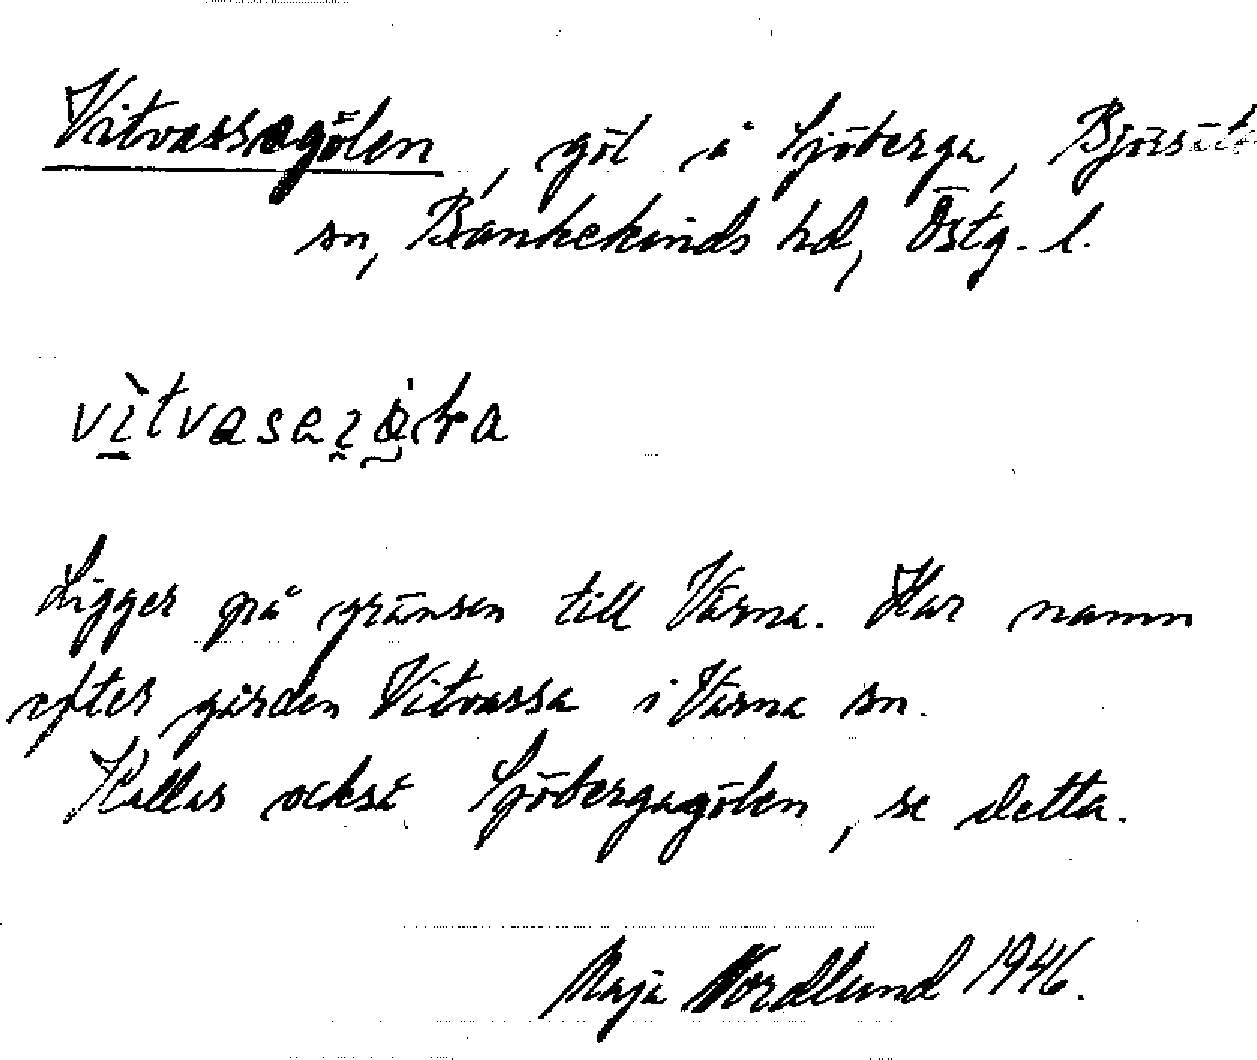 Vitvassegölen, göl å Sjöberga, Björsäters
sn, Bankekinds hd, Östg. l.
Ligger på gränsen till Värna. Har namn
efter gården Vitvassa i Värna sn.
Kallas också Sjöbergagölen, se detta.
Maja Nordlund 1946.